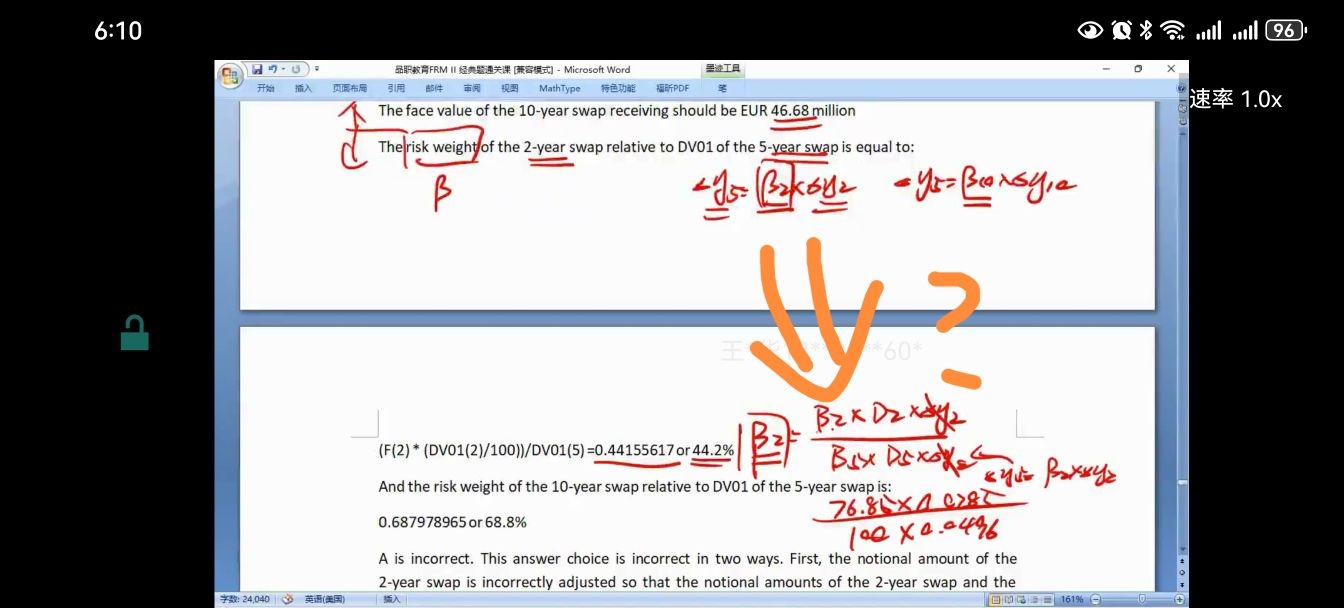 6:10
96
品职教育FRM II 经典题通关课 [兼容模式] - Microsoft Word
墨迹工具
开始 插入 页面布局 引用 邮件 审阅 视图 MathType 特色功能 福昕PDF 笔
速率 1.0x
The face value of the 10-year swap receiving should be EUR 46.68 million
The risk weight of the 2-year swap relative to DV01 of the 5-year swap is equal to:
β
y5= β2× y2
y5= β10 × y10
?
60*
(F(2) * (DV01(2)/100))/DV01(5) =0.44155617 or 44.2%
β2 =
B2 × D2 × y2
B5 × D5 ×
y5= β2× y2
And the risk weight of the 10-year swap relative to DV01 of the 5-year swap is:
76.85×0.0285
0.687978965 or 68.8%
100 × 0.0496
A is incorrect. This answer choice is incorrect in two ways. First, the notional amount of the
2-year swap is incorrectly adjusted so that the notional amounts of the 2-year swap and the
字数: 24,040 英语(美国) 插入 161%